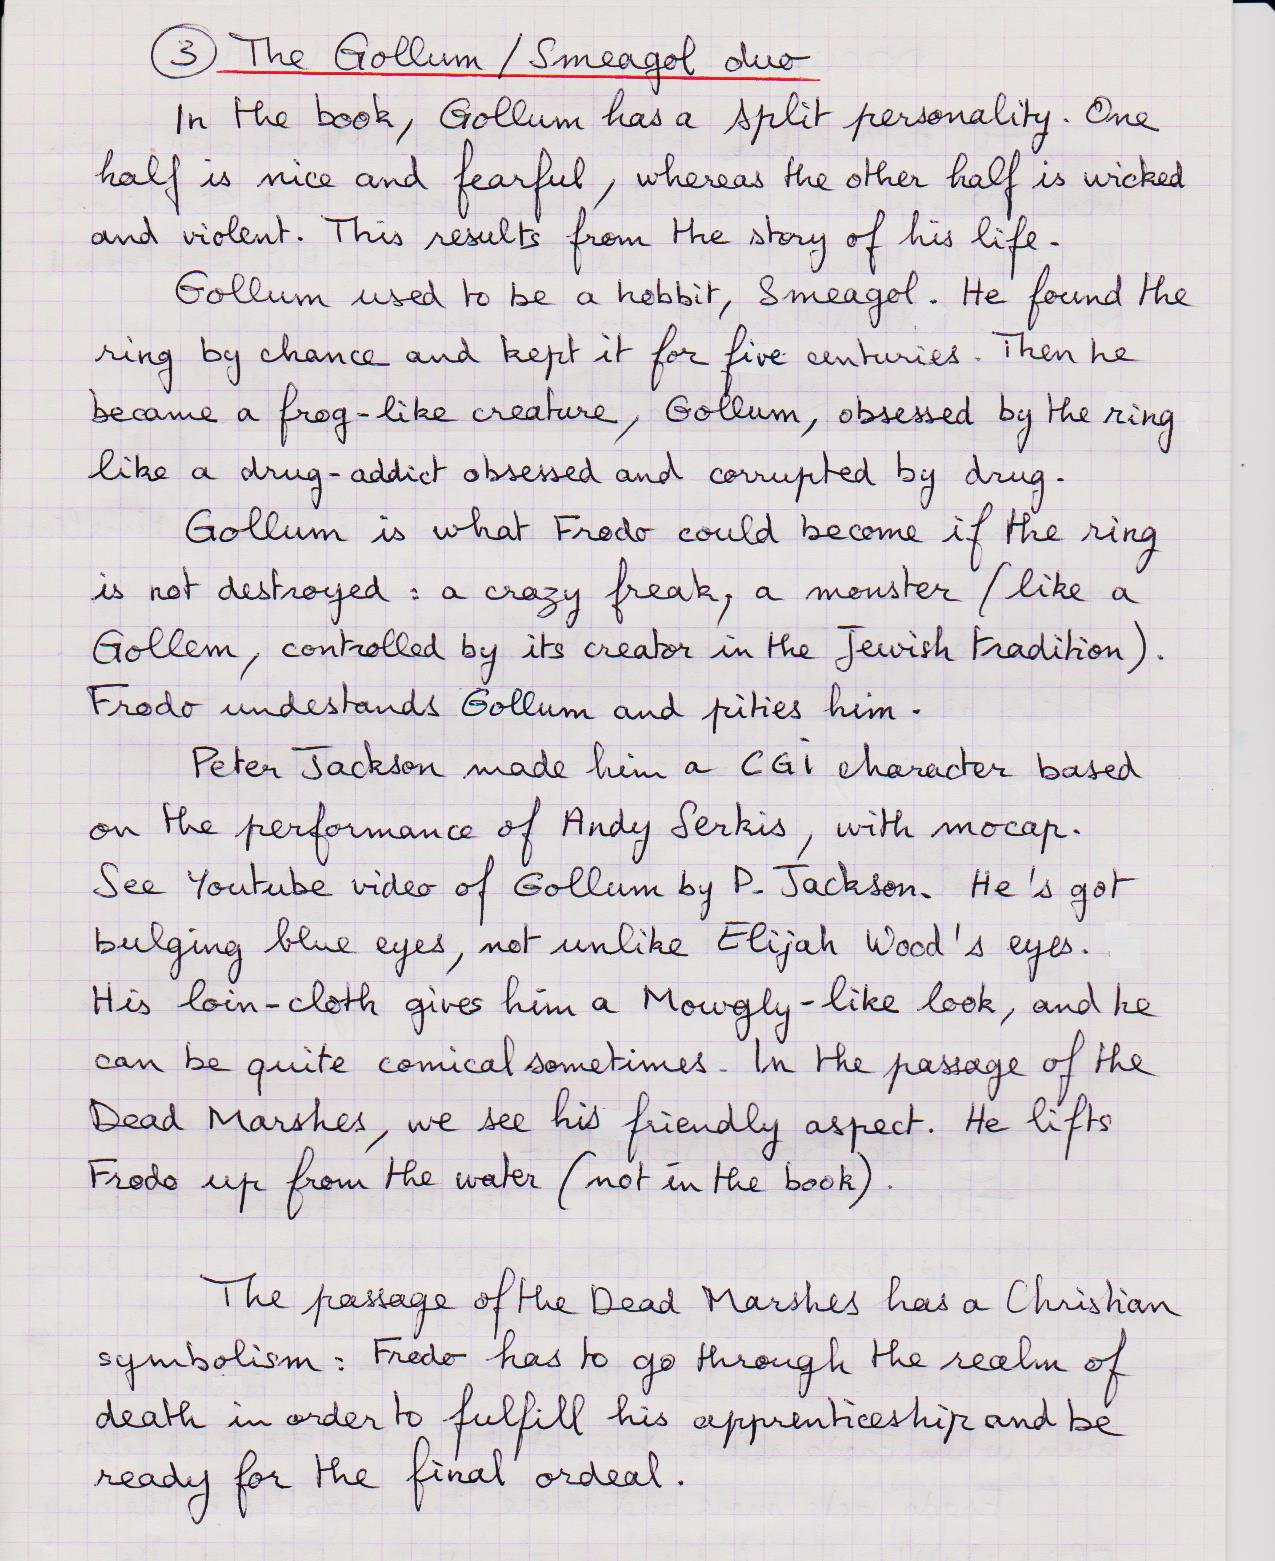 3 The Gollum / Smeagol duo
In the book, Gollum has a split personality. One
half is nice and fearful, whereas the other half is wicked
and violent. This results from the story of his life.
Gollum used to be a hobbit, Smeagol. He found the
ring by chance and kept it for five centuries. Then he
became a frog-like creature, Gollum, obsessed by the ring
like a drug-addict obsessed and corrupted by drug.
Gollum is what Frodo could become if the ring
is not destroyed : a crazy freak, a monster (like a
Gollem, controlled by its creator in the Jewish tradition).
Frodo undestands Gollum and pities him.
Peter Jackson made him a CGI character based
on the performance of Andy Serkis, with mocap.
See Youtube video of Gollum by P. Jackson. He's got
bulging blue eyes, not unlike Elijah Wood's eyes.
His loin-cloth gives him a Mowgly-like look, and he
can be quite comical sometimes. In the passage of the
Dead Marshes, we see his friendly aspect. He lifts
Frodo up from the water (not in the book).
The passage of the Dead Marshes has a Christian
symbolism : Frodo has to go through the realm of
death in order to fulfill his apprenticeship and be
ready for the final ordeal.